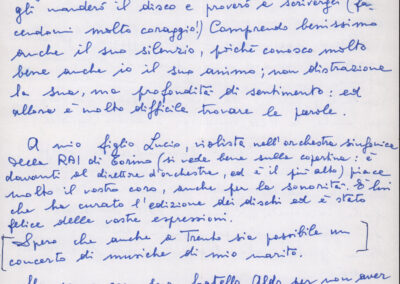 gli manderò il disco e proverò a scrivergli (fa-
cendomi molto coraggio!) Comprendo benissimo
anche il suo silenzio, poiché conosco molto
bene anche io il suo animo; non distrazione
la sua, ma profondità di sentimento: ed
allora è molto difficile trovare le parole.
A mio figlio Lucio, violista nell'orchestra sinfonica
della RAI di Torino (si vede bene sulla copertina: è
davanti al direttore d'orchestra, ed è il più alto) piace
molto il vostro coro, anche per la sonorità. È lui
che ha curato l'edizione dei dischi ed è stato
felice delle vostre espressioni.
[Spero che anche a Trento sia possibile un
concerto di musiche di mio marito.]
fratello Aldo per non aver